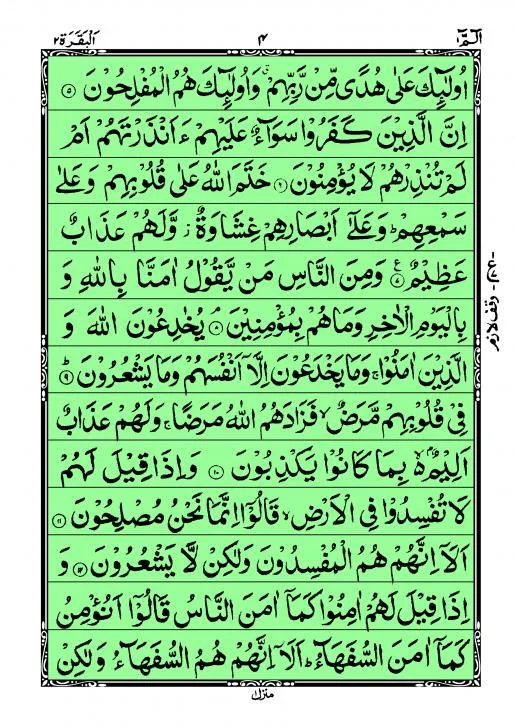 الٓمّٓ ١ ۴ اَلْبَقَرَة ٢
اُولٰٓئِكَ عَلٰى هُدًى مِّنْ رَّبِّهِمْ ۙ وَاُولٰٓئِكَ هُمُ الْمُفْلِحُوْنَ ۝٥
اِنَّ الَّذِيْنَ كَفَرُوْا سَوَآءٌ عَلَيْهِمْ ءَاَنْذَرْتَهُمْ اَمْ
لَمْ تُنْذِرْهُمْ لَا يُؤْمِنُوْنَ ۝٦ خَتَمَ اللّٰهُ عَلٰى قُلُوْبِهِمْ وَعَلٰى
سَمْعِهِمْ ؕ وَعَلٰٓى اَبْصَارِهِمْ غِشَاوَةٌ ز وَّلَهُمْ عَذَابٌ
عَظِيْمٌ ۝٧ ع وَمِنَ النَّاسِ مَنْ يَّقُوْلُ اٰمَنَّا بِاللّٰهِ وَ
بِالْيَوْمِ الْاٰخِرِ وَمَا هُمْ بِمُؤْمِنِيْنَ ۝٨ يُخٰدِعُوْنَ اللّٰهَ وَ
الَّذِيْنَ اٰمَنُوْا ۚ وَمَا يَخْدَعُوْنَ اِلَّآ اَنْفُسَهُمْ وَمَا يَشْعُرُوْنَ ؕ ۝٩
فِيْ قُلُوْبِهِمْ مَّرَضٌ ۙ فَزَادَهُمُ اللّٰهُ مَرَضًا ۚ وَلَهُمْ عَذَابٌ
اَلِيْمٌۢ ۙ بِمَا كَانُوْا يَكْذِبُوْنَ ۝١٠ وَاِذَا قِيْلَ لَهُمْ
لَا تُفْسِدُوْا فِي الْاَرْضِ ۙ قَالُوْٓا اِنَّمَا نَحْنُ مُصْلِحُوْنَ ۝١١
اَلَآ اِنَّهُمْ هُمُ الْمُفْسِدُوْنَ وَلٰكِنْ لَّا يَشْعُرُوْنَ ۝١٢ وَ
اِذَا قِيْلَ لَهُمْ اٰمِنُوْا كَمَآ اٰمَنَ النَّاسُ قَالُوْٓا اَنُؤْمِنُ
كَمَآ اٰمَنَ السُّفَهَآءُ ؕ اَلَآ اِنَّهُمْ هُمُ السُّفَهَآءُ وَلٰكِنْ
وقف لازم
منزل ١